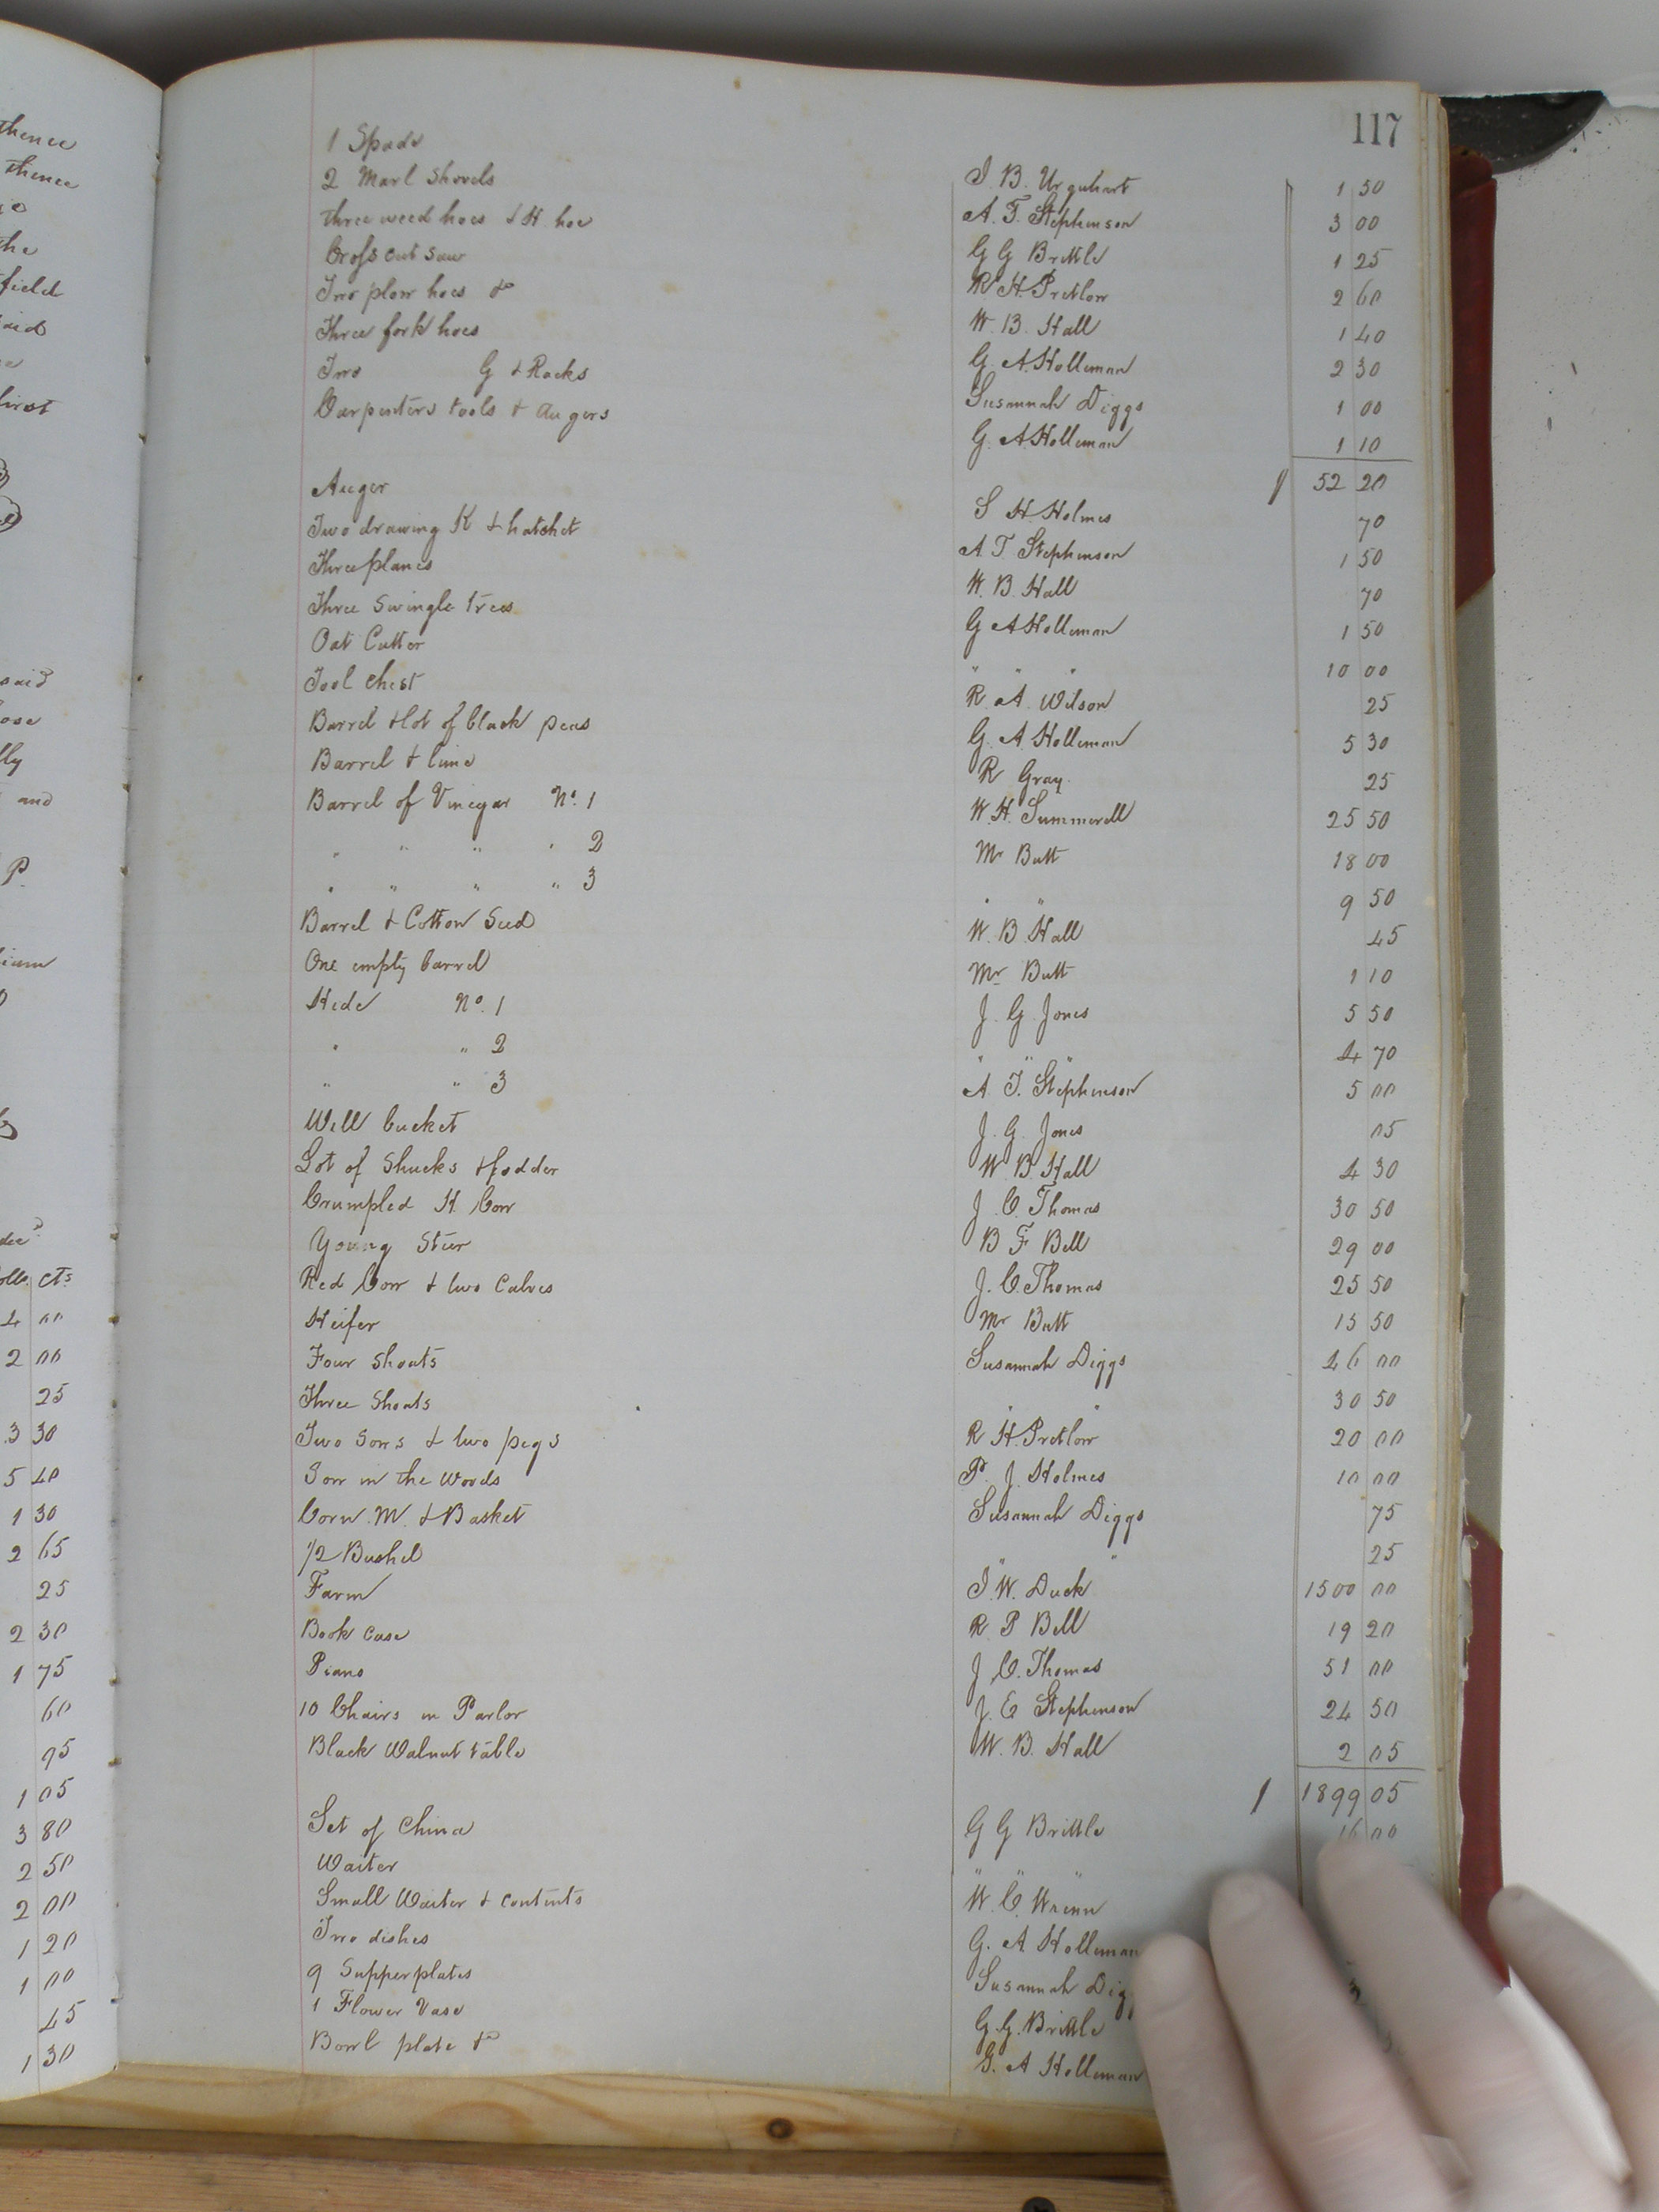 thence
thence
the
field
said
first
said
and
P.
Dolls cts
4 00
2 00
25
3 30
5 40
1 30
2 65
25
2 30
1 75
60
95
1 05
3 80
2 50
2 00
1 20
1 00
45
1 30
117
1 Spade J. B. Urquhart 1 50
2 Marl Shovels A. T. Stephenson 3 00
three weed hoes & H. hoe G G Brittle 1 25
Cross cut saw R H. Pretlow 2 60
Two plow hoes &c W. B. Hall 1 40
Three fork hoes G. A. Holleman 2 30
Two G & Racks Susannah Diggs 1 00
Carpenters tools & augers G. A. Holleman 1 10
52 20
Auger S H. Holmes 70
Two drawing K & hatchet A. T. Stephenson 1 50
Three planes W. B. Hall 70
Three Swingle trees G A Holleman 1 50
Oat Cutter " " " 10 00
Tool chest R. A. Wilson 25
Barrel & lot of black peas G. A. Holleman 5 30
Barrel & lime R Gray 25
Barrel of Vinegar No. 1 W. H. Summerell 25 50
" " " " 2 Mr Butt 18 00
" " " " 3 " " 9 50
Barrel & Cotton Seed W. B. Hall 45
One empty barrel Mr Butt 1 10
Hide No. 1 J. G. Jones 5 50
" " 2 " " " 4 70
" " 3 A. T. Stephenson 5 00
Well bucket J. G. Jones 05
Lot of Shucks & fodder W B Hall 4 30
Crumpled H. Cow J. C. Thomas 30 50
Young Steer B F Bell 29 00
Red Cow & two Calves J. C. Thomas 25 50
Heifer Mr Butt 15 50
Four Shoats Susannah Diggs 46 00
Three Shoats " " 30 50
Two Sows & two pigs R H. Pretlow 20 00
Sow in the woods P. J. Holmes 10 00
Corn. M. & Basket Susannah Diggs 75
1/2 Bushel " " 25
Farm J. W. Duck 1500 00
Book case R P Bell 19 20
Piano J. C. Thomas 51 00
10 Chairs in Parlor J. E Stephenson 24 50
Black Walnut table W. B. Hall 2 05
1899 05
Set of China G G Brittle 16 00
Waiter " " "
Small Waiter & contents W. C. Wrenn
Two dishes G. A Holleman
9 Supper plates Susannah Dig
1 Flower Vase G. G. Brittle
Bowl plate &c G. A Holleman